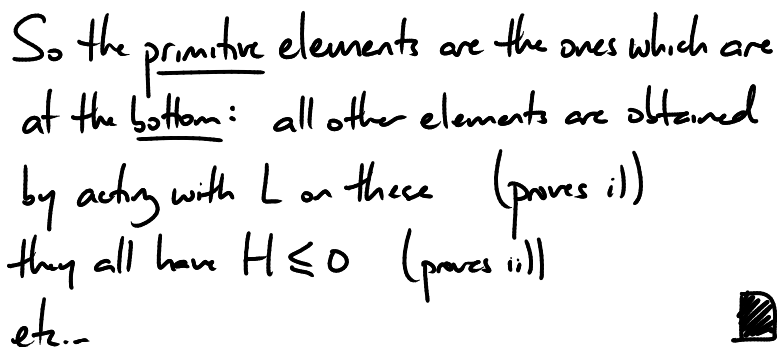 So the primitive elements are the ones which are
at the bottom: all other elements are obtained
by acting with L on these (proves i))
they all have H ≤ 0 (proves ii))
etc...